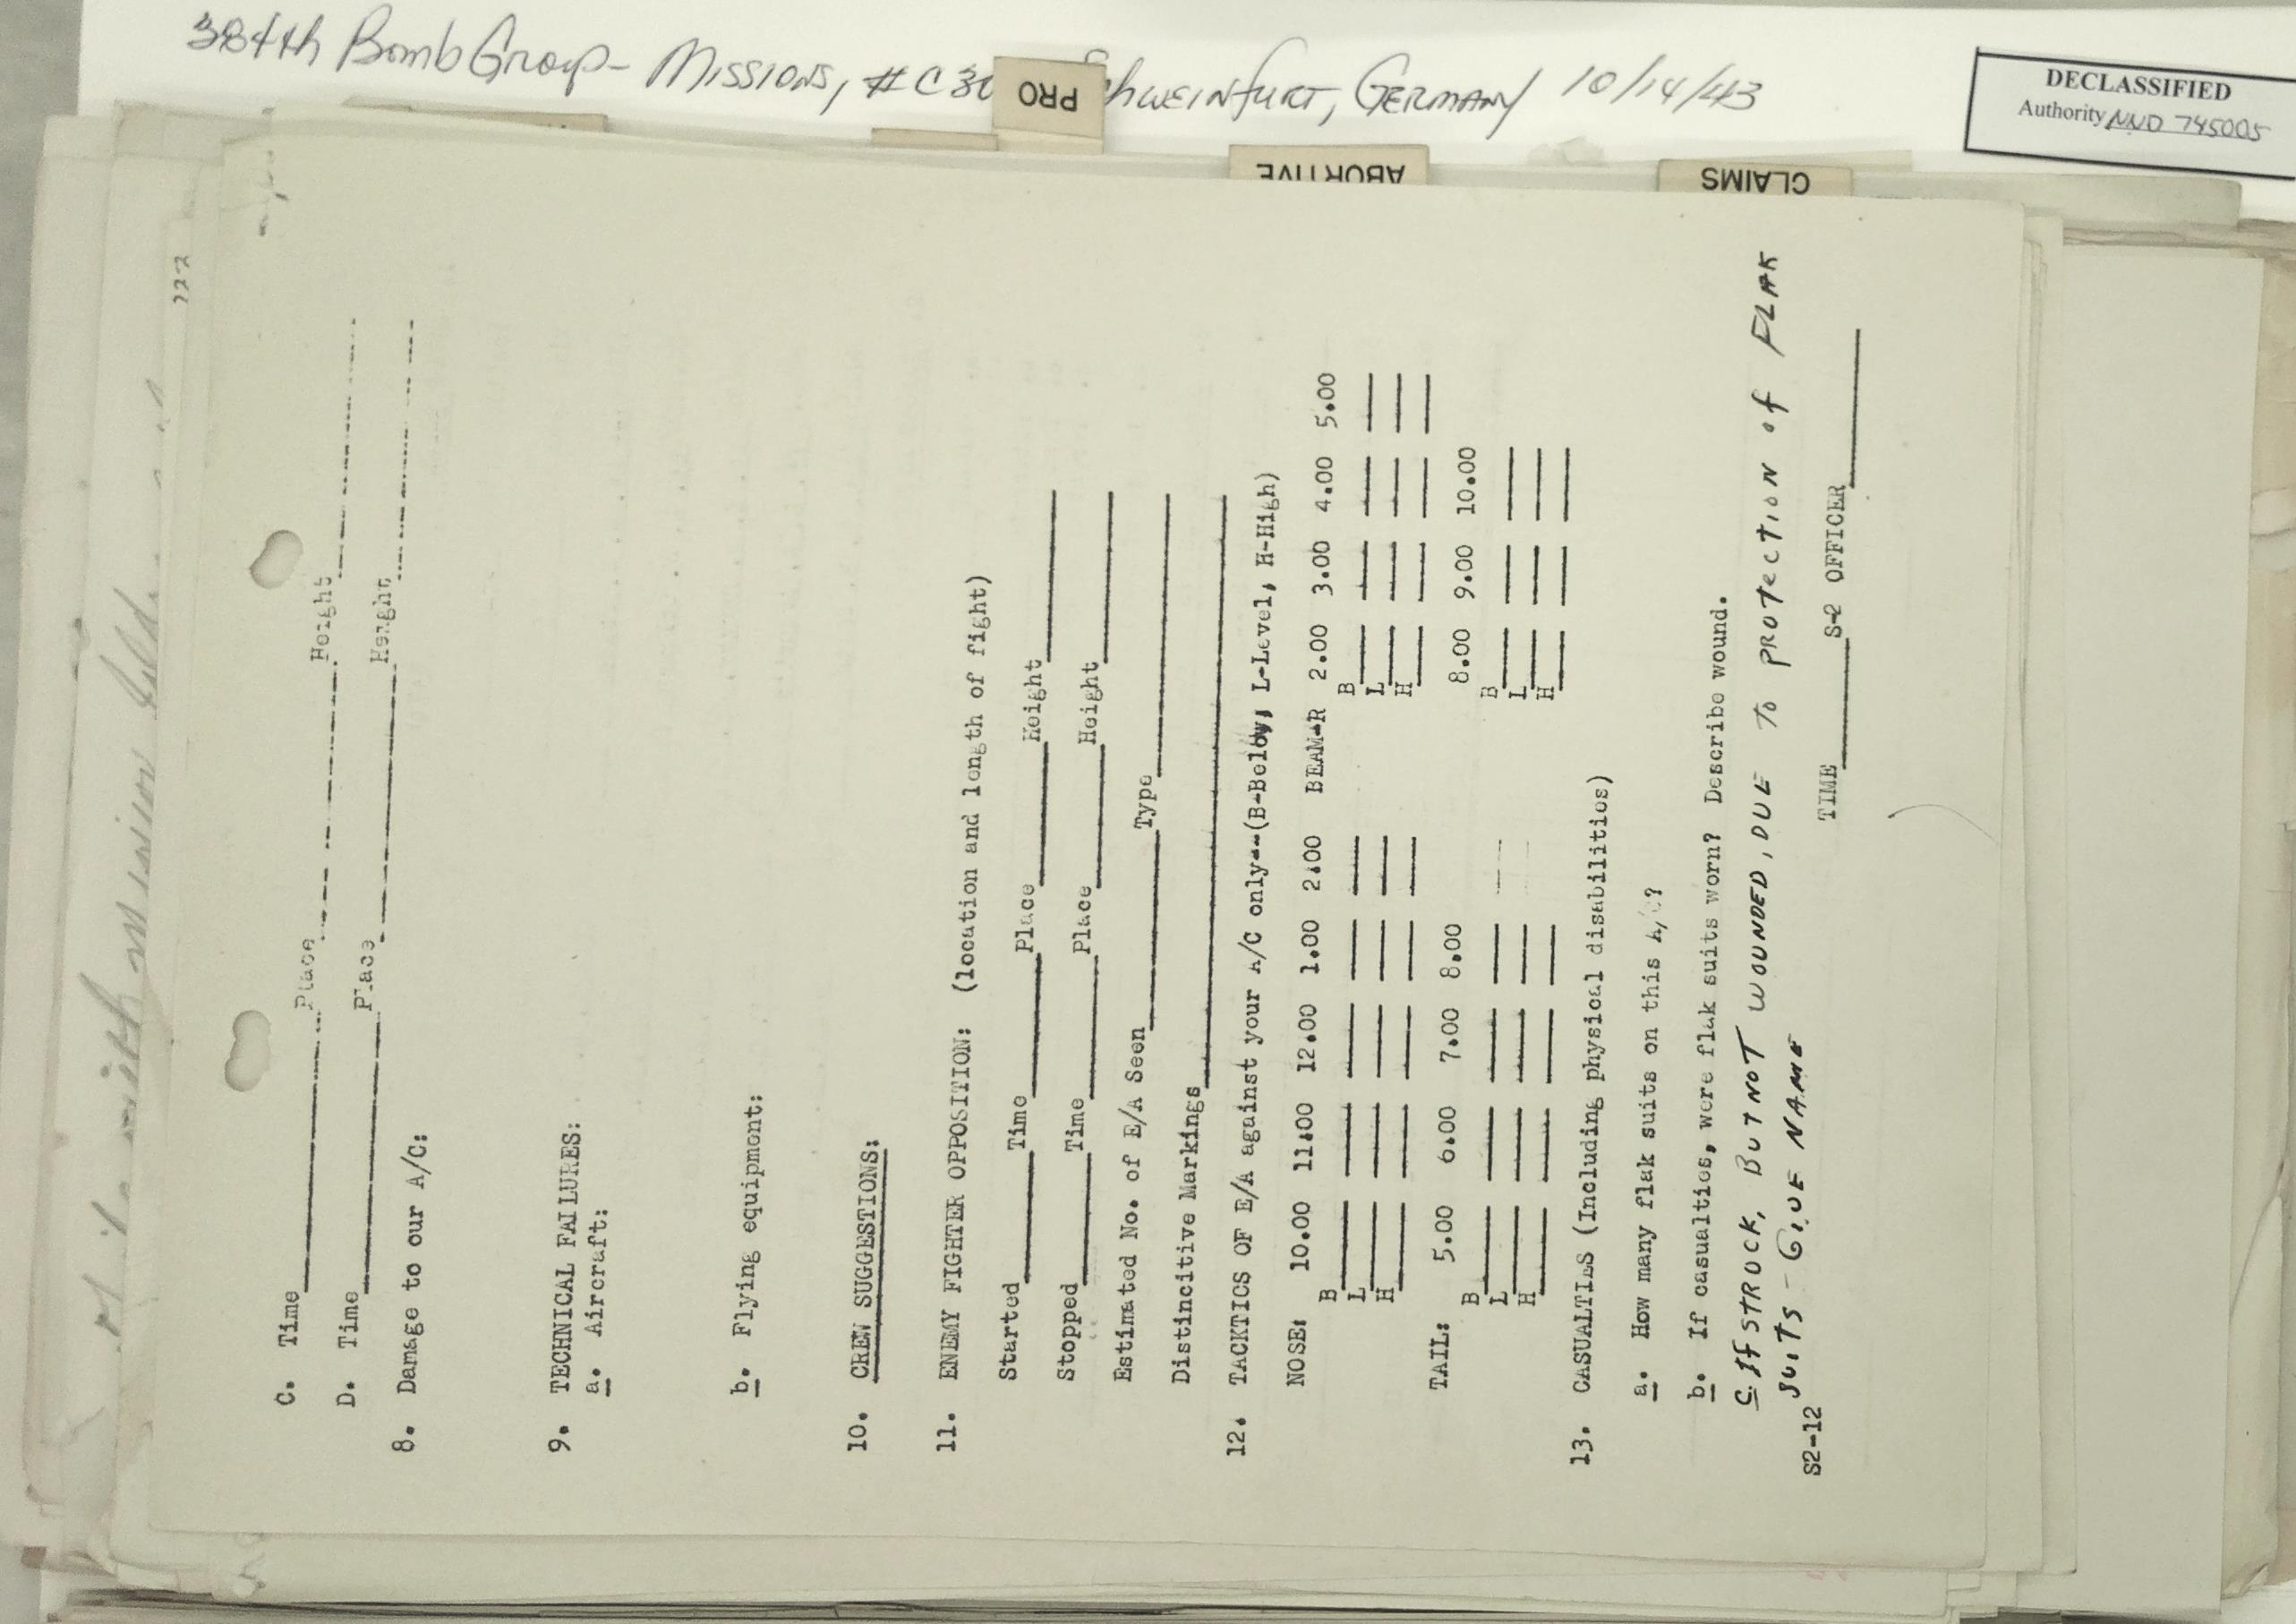 384th Bomb Group - Missions, #C30 Schweinfurt, Germany 10/14/43
DECLASSIFIED
Authority NND 745005
PRO
ABORTIVE
CLAIMS
722
C. Time Place Height
D. Time Place Height
8. Damage to our A/C:
9. TECHNICAL FAILURES:
a. Aircraft:
b. Flying equipment:
10. CREW SUGGESTIONS:
11. ENEMY FIGHTER OPPOSITION: (location and length of fight)
Started Time Place Height
Stopped Time Place Height
Estimated No. of E/A Seen Type
Distincitive Markings
12. TACKTICS OF E/A against your A/C only--(B-Below, L-Level, H-High)
NOSE: 10.00 11.00 12.00 1.00 2.00 BEAM-R 2.00 3.00 4.00 5.00
B B
L L
H H
TAIL: 5.00 6.00 7.00 8.00 8.00 9.00 10.00
B B
L L
H H
13. CASUALTIES (Including physical disabilities)
a. How many flak suits on this A/C?
b. If casualties, were flak suits worn? Describe wound.
C. If STRUCK, BUT NOT WOUNDED, DUE TO PROTECTION of FLAK
SUITS - GIVE NAME
S2-12 TIME S-2 OFFICER